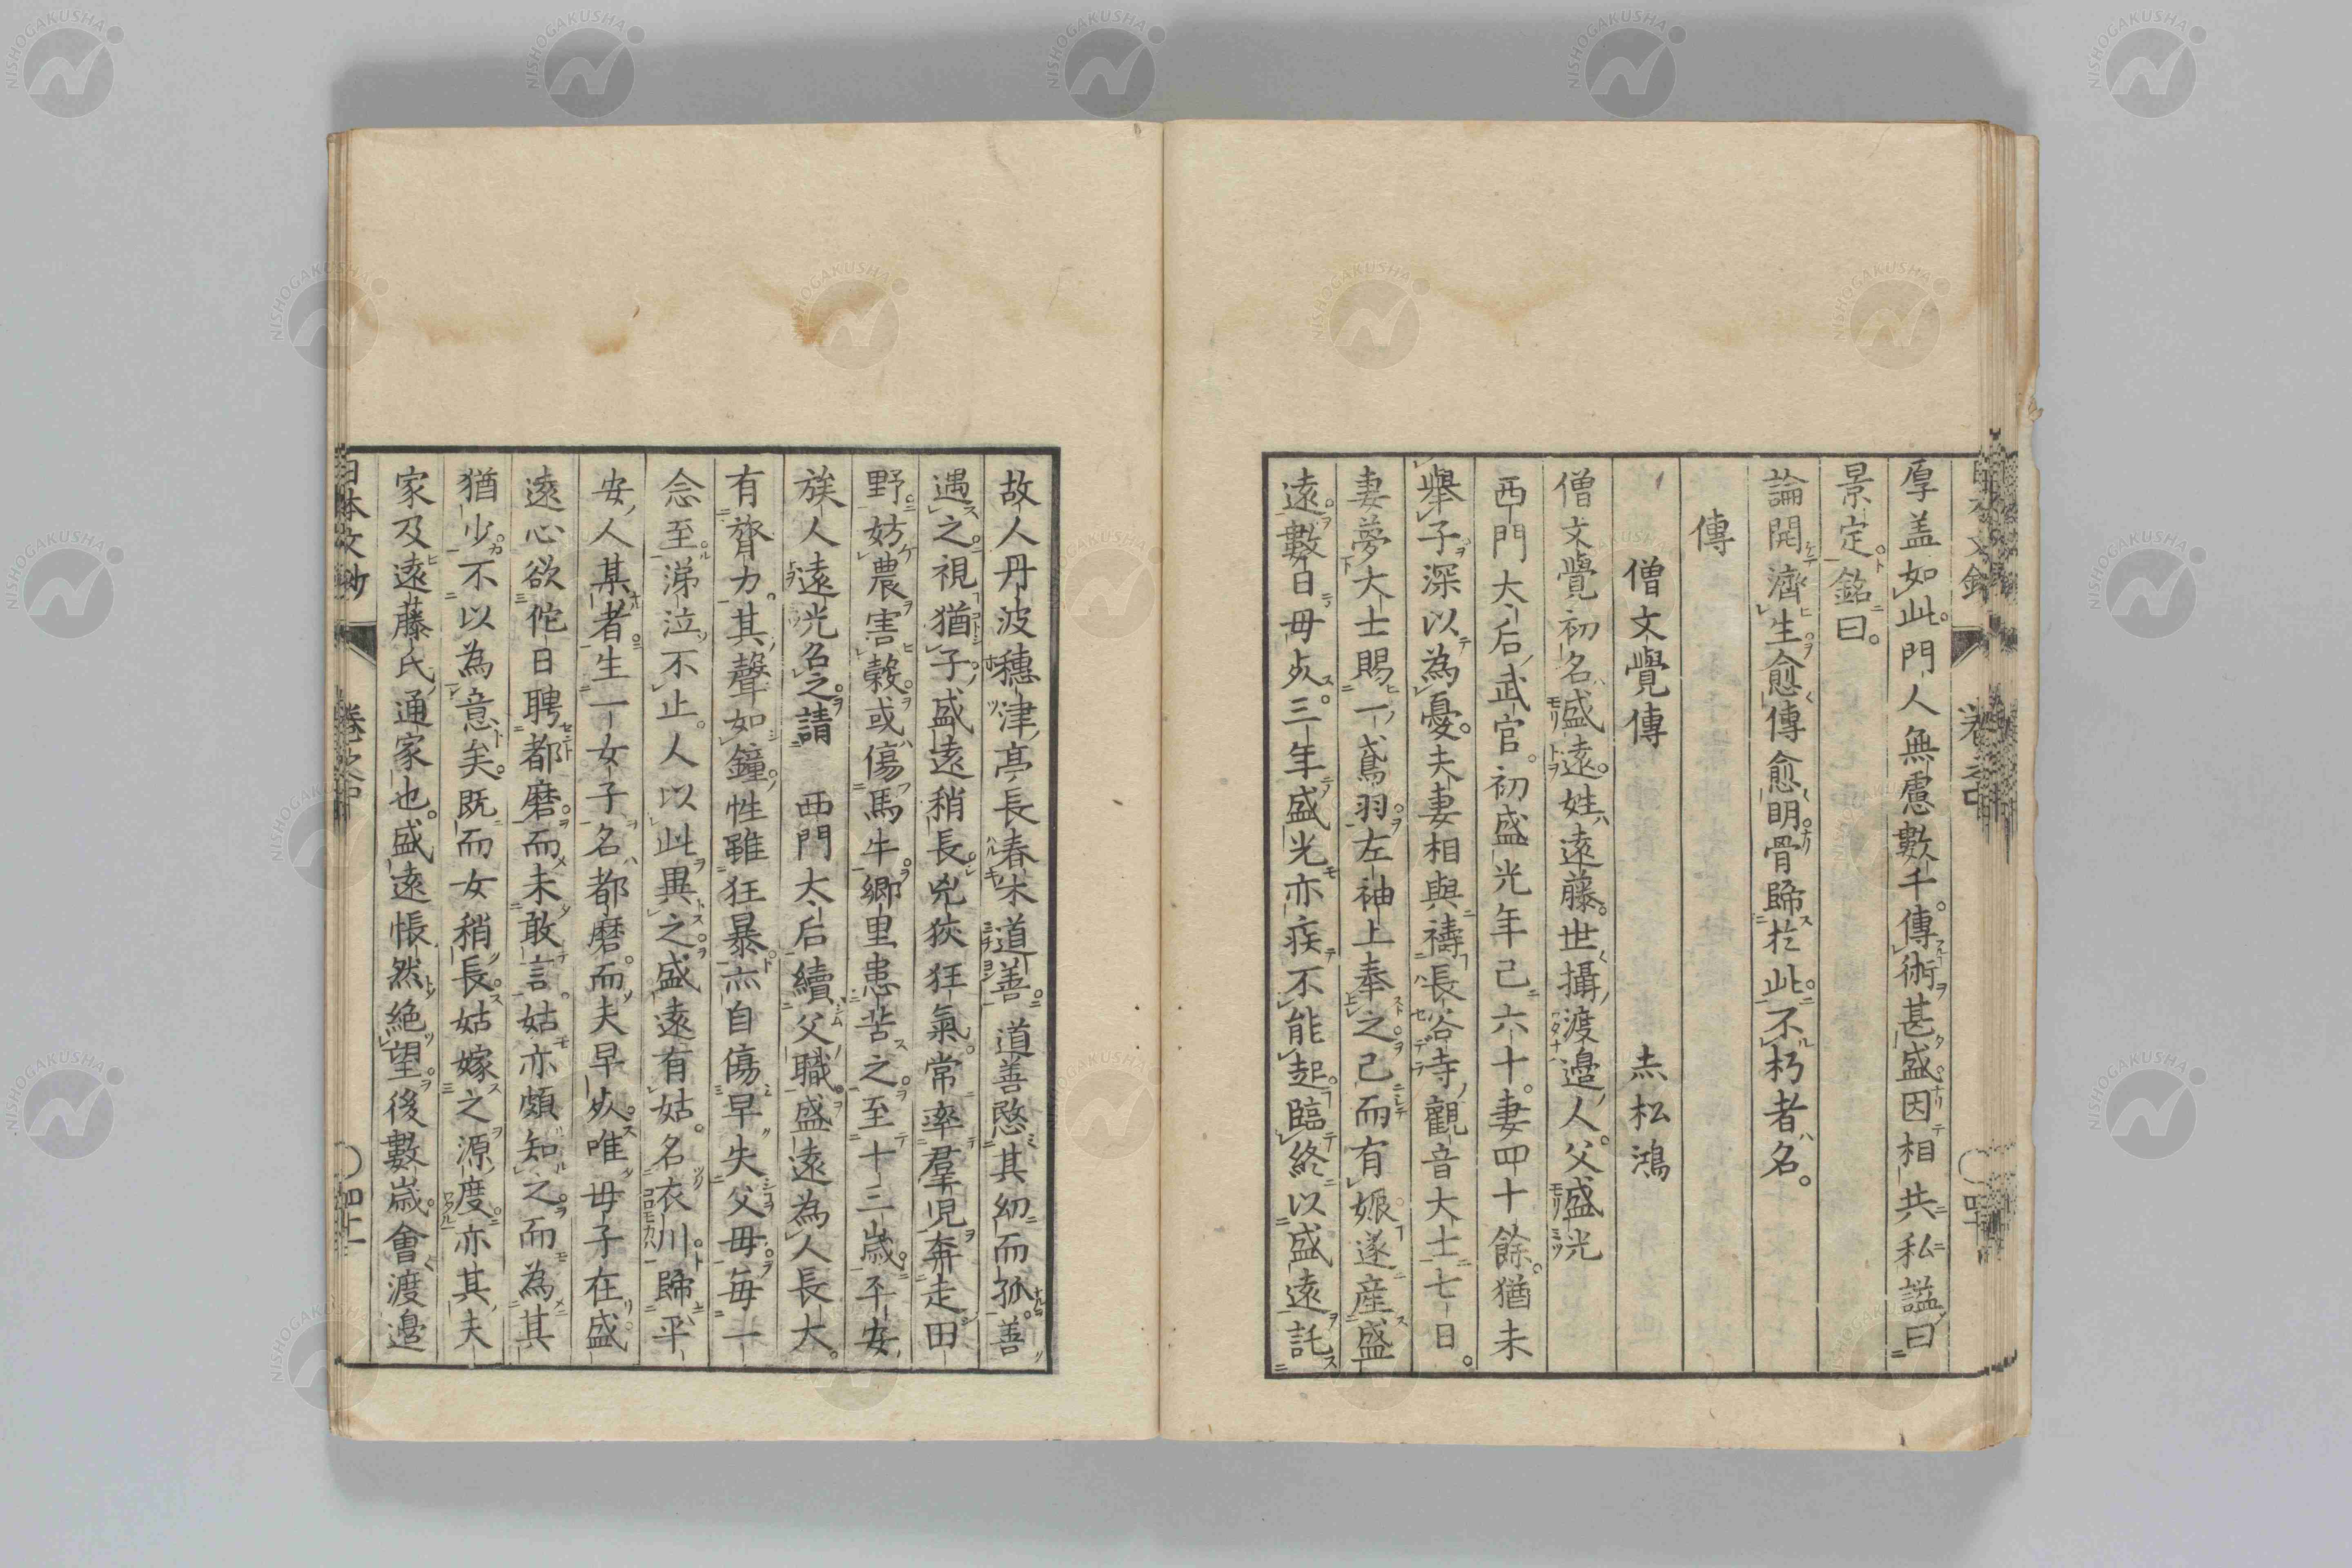 厚盖如此門人無慮數千傳術甚盛因相共私謚曰
景定銘曰
論開濟生愈傳愈明骨歸於此不朽者名
傳
僧文覺傳　赤松鴻
僧文覺初名盛遠姓遠藤世攝渡邉人父盛光
西門大后武官初盛光年已六十妻四十餘猶未
舉子深以為憂夫妻相與禱長谷寺觀音大士七日
妻夢大士賜一鳶羽左袖上奉之已而有娠遂産盛
遠數日母歿三年盛光亦疾不能起臨終以盛遠託
故人丹波穗津亭長春木道善道善愍其幼而孤善
遇之視猶子盛遠稍長兇狹狂氣常率羣児奔走田
野妨農害穀或傷馬牛鄉里患苦之至十三歲平安
族人遠光召之請　西門大后續父職盛遠為人長大
有膂力其聲如鐘性雖狂暴亦自傷早失父母每一
念至涕泣不止人以此異之盛遠有姑名衣川歸平
安人某者生一女子名都磨而夫早歿唯母子在盛
遠心欲佗日聘都磨而未敢言姑亦頗知之而為其
猶少不以為意矣既而女稍長姑嫁之源度亦其夫
家及遠藤氏通家也盛遠悵然絶望後數歲會渡邉
日本文鈔　卷之中